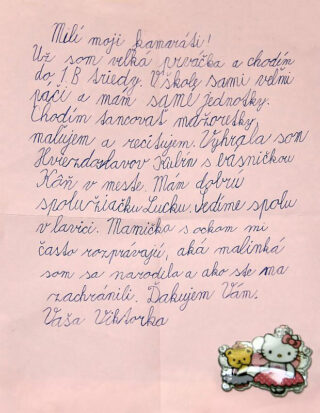 Milí moji kamaráti!
Už som veľká prváčka a chodím
do 1.B triedy. V škole sa mi veľmi
páči a mám samé jednotky.
Chodím tancovať mažoretky,
maľujem a recitujem. Vyhrala som
Hviezdoslavov Kubín s básničkou
Kôň, v meste. Mám dobrú
spolužiačku Lucku. Sedíme spolu
v lavici. Mamička s ockom mi
často rozprávajú, aká malinká
som sa narodila a ako ste ma
zachránili. Ďakujem Vám.
Vaša Viktorka